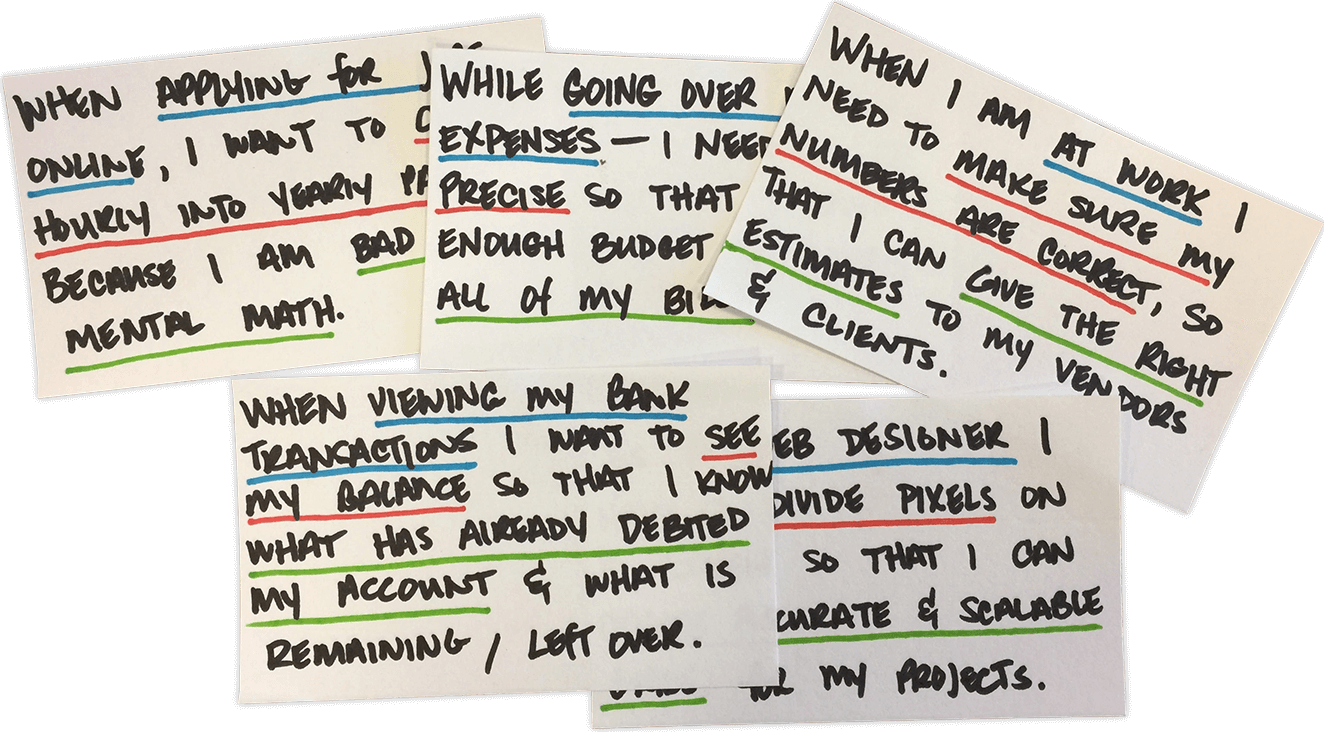 WHEN APPLYING for
ONLINE, I WANT TO
HOURLY INTO YEARLY
BECAUSE I AM BAD
MENTAL MATH.
WHILE GOING OVER
EXPENSES – I NEED
PRECISE SO THAT
ENOUGH BUDGET
ALL Of MY
WHEN I AM AT WORK I
NEED TO MAKE SURE MY
NUMBERS ARE CORRECT, SO
THAT I CAN GIVE THE RIGHT
ESTIMATES TO MY VENDORS
& CLIENTS.
WHEN VIEWING MY BANK
TRANSACTIONS I WANT TO SEE
MY BALANCE SO THAT I KNOW
WHAT HAS ALREADY DEBITED
MY ACCOUNT & WHAT IS
REMAINING / LEFT OVER.
DESIGNER I
DIVIDE PIXELS ON
SO THAT I CAN
& SCALABLE
MY PROJECTS.